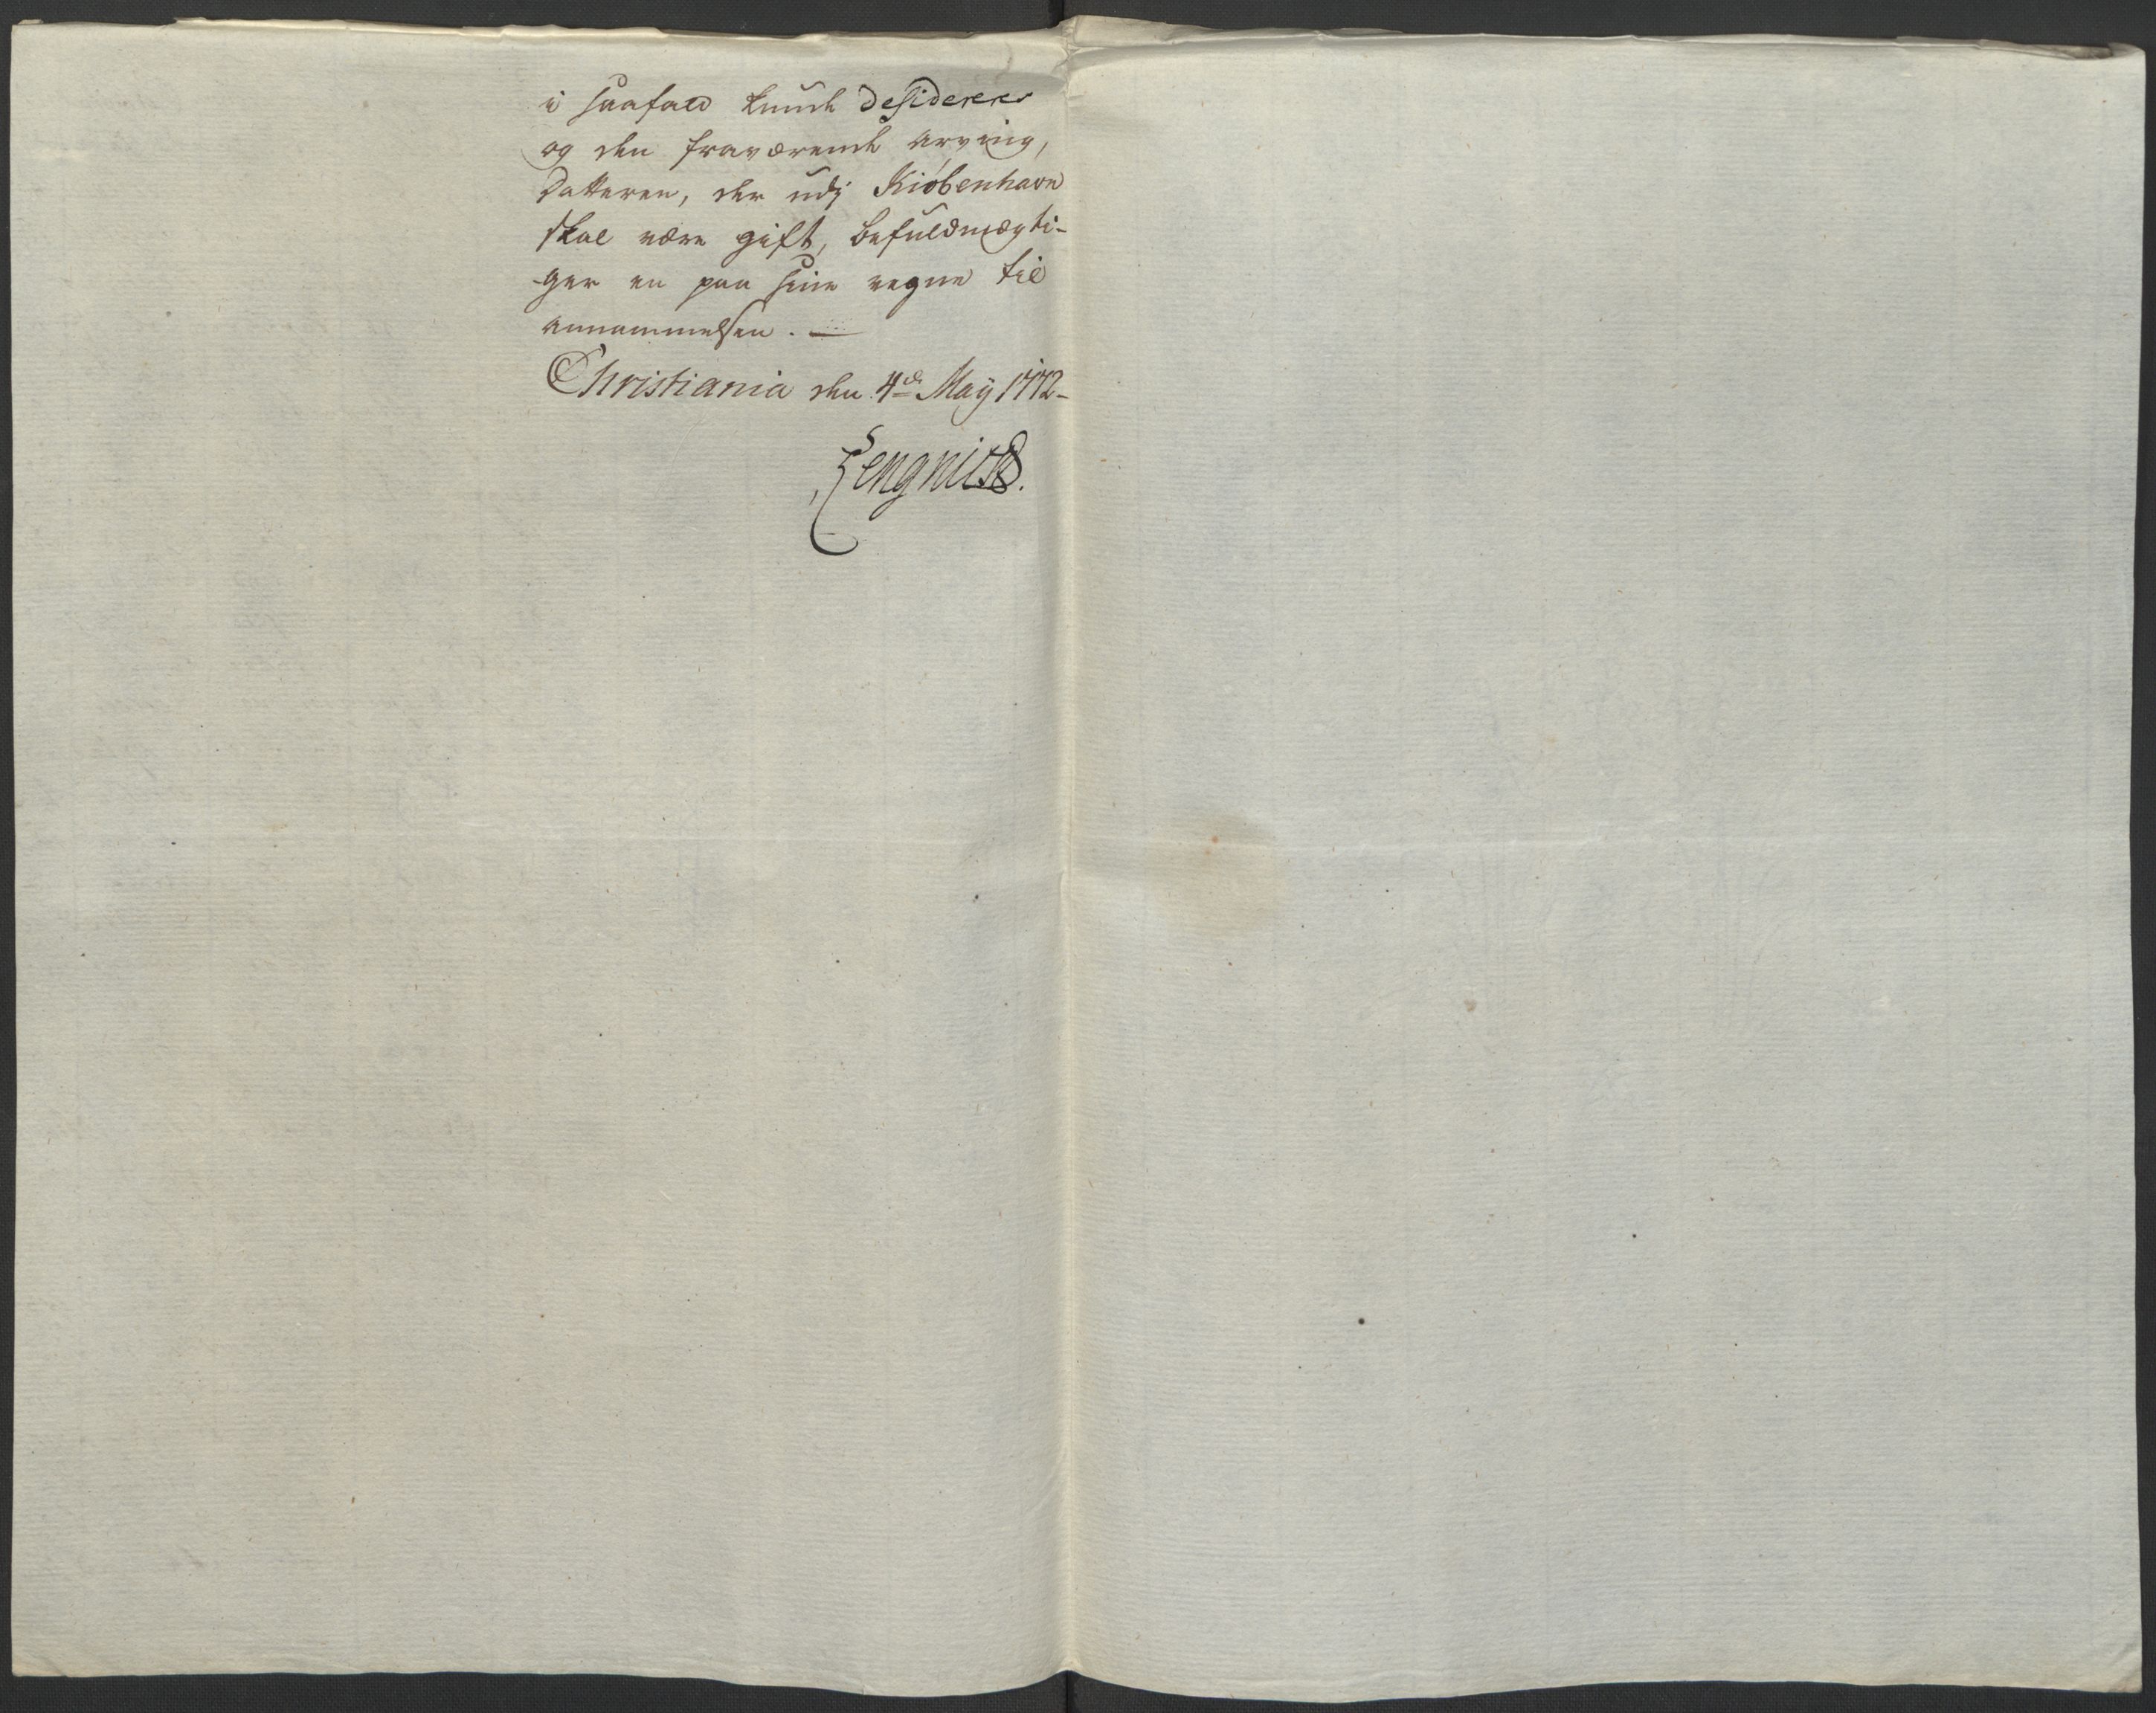 i saafald kunde desidereres
og den fraværende arving,
Datteren, der udj Kiøbenhavn
skal være gift, befuldmægti-
-ger en paa sine vegne til
annammelsen. —
Christiania den 4de Maÿ 1772-